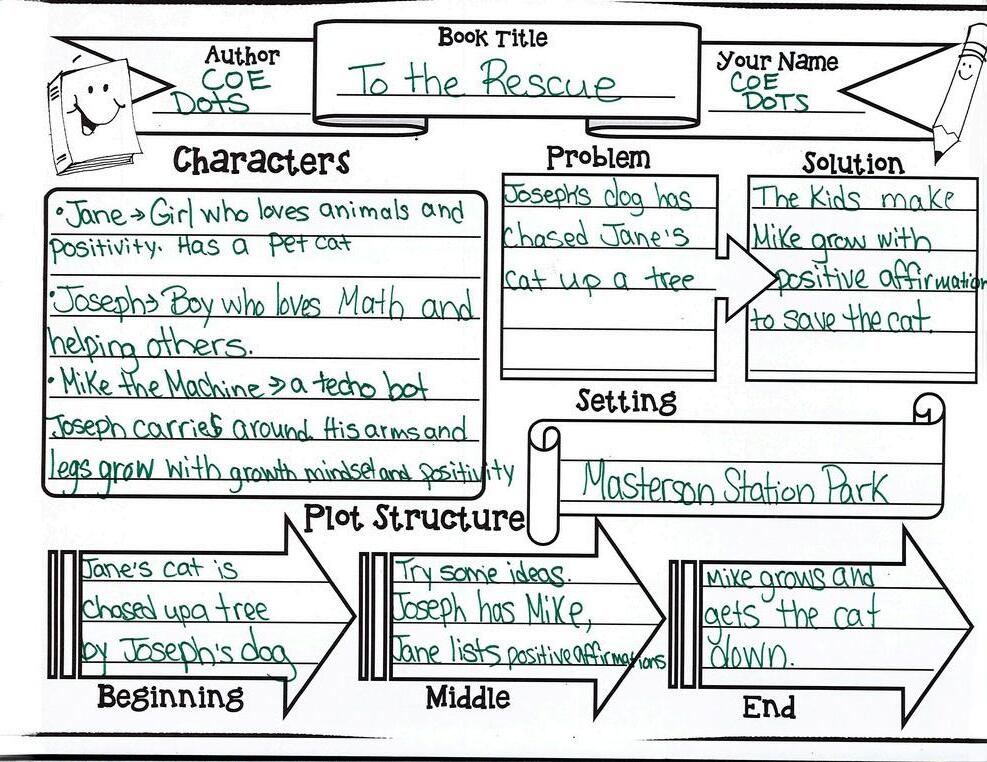 Book Title
To the Rescue
Author
COE
DoTS
Your Name
COE
DOTS
Characters
•Jane → Girl who loves animals and
positivity. Has a pet cat
•Joseph → Boy who loves Math and
helping others.
•Mike the Machine → a techo bot
Joseph carries around. His arms and
legs grow with growth mindset and positivity
Problem
Joseph's dog has
chased Jane's
cat up a tree
Solution
The Kids make
Mike grow with
positive affirmation
to save the cat.
Setting
Masterson Station Park
Plot Structure
Jane's cat is
chased up a tree
by Joseph's dog
Beginning
Try some ideas.
Joseph has Mike,
Jane lists positive affirmations
Middle
Mike grows and
gets the cat
down.
End